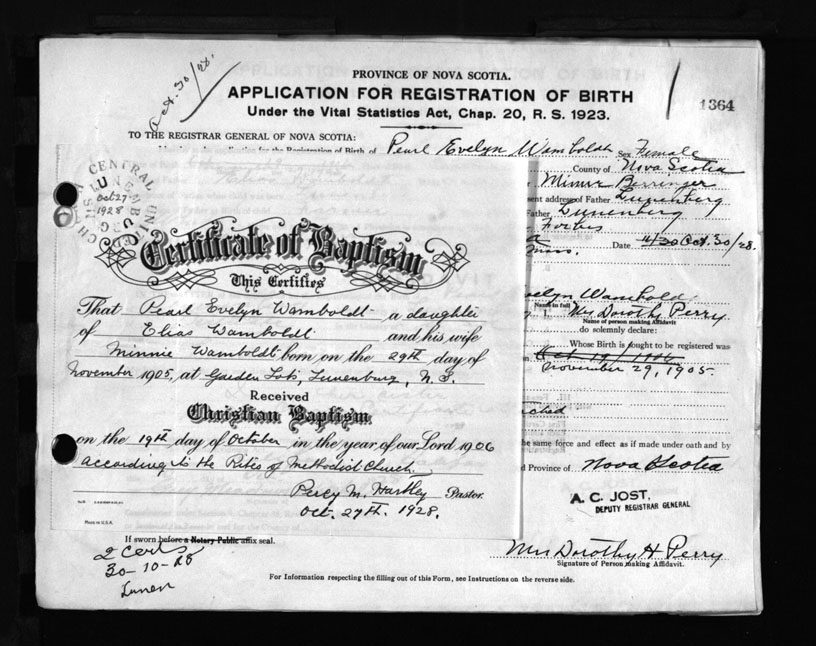 Oct. 30/28.
PROVINCE OF NOVA SCOTIA.
APPLICATION FOR REGISTRATION OF BIRTH
Under the Vital Statistics Act, Chap. 20, R. S. 1923.
1364
TO THE REGISTRAR GENERAL OF NOVA SCOTIA:
Registration of Birth of Pearl Evelyn Wamboldt Sex Female
County of Nova Scotia
Minnie Berringer
sent address of Father Lunenberg
Father Lunenberg
Forbes
Date Oct. 30/28.
CENTRAL UNITED CHURCH
LUNENBURG
Oct 27
1928
Certificate of Baptism
This Certifies
That Pearl Evelyn Wamboldt a daughter
of Elias Wamboldt and his wife
Minnie Wamboldt born on the 29th day of
November 1905, at Garden Lots, Lunenburg, N.S.
Received
Christian Baptism
on the 19th day of October in the year of our Lord 1906
according to the Rites of Methodist Church.
Percy M. Hartley Pastor.
Oct. 27th. 1928.
Made in U.S.A.
velyn Wamboldt
Name in full
I, Mrs Dorothy Perry
Name of person making Affidavit
do solemnly declare:
Whose Birth is sought to be registered was
Oct 19/1906
November 29, 1905.
ched
he same force and effect as if made under oath and by
Province of Nova Scotia
A. C. JOST,
DEPUTY REGISTRAR GENERAL
If sworn before a Notary Public affix seal.
2 certs
30-10-28
Lunen
Mrs Dorothy H Perry
Signature of Person making Affidavit.
For Information respecting the filling out of this Form, see Instructions on the reverse side.